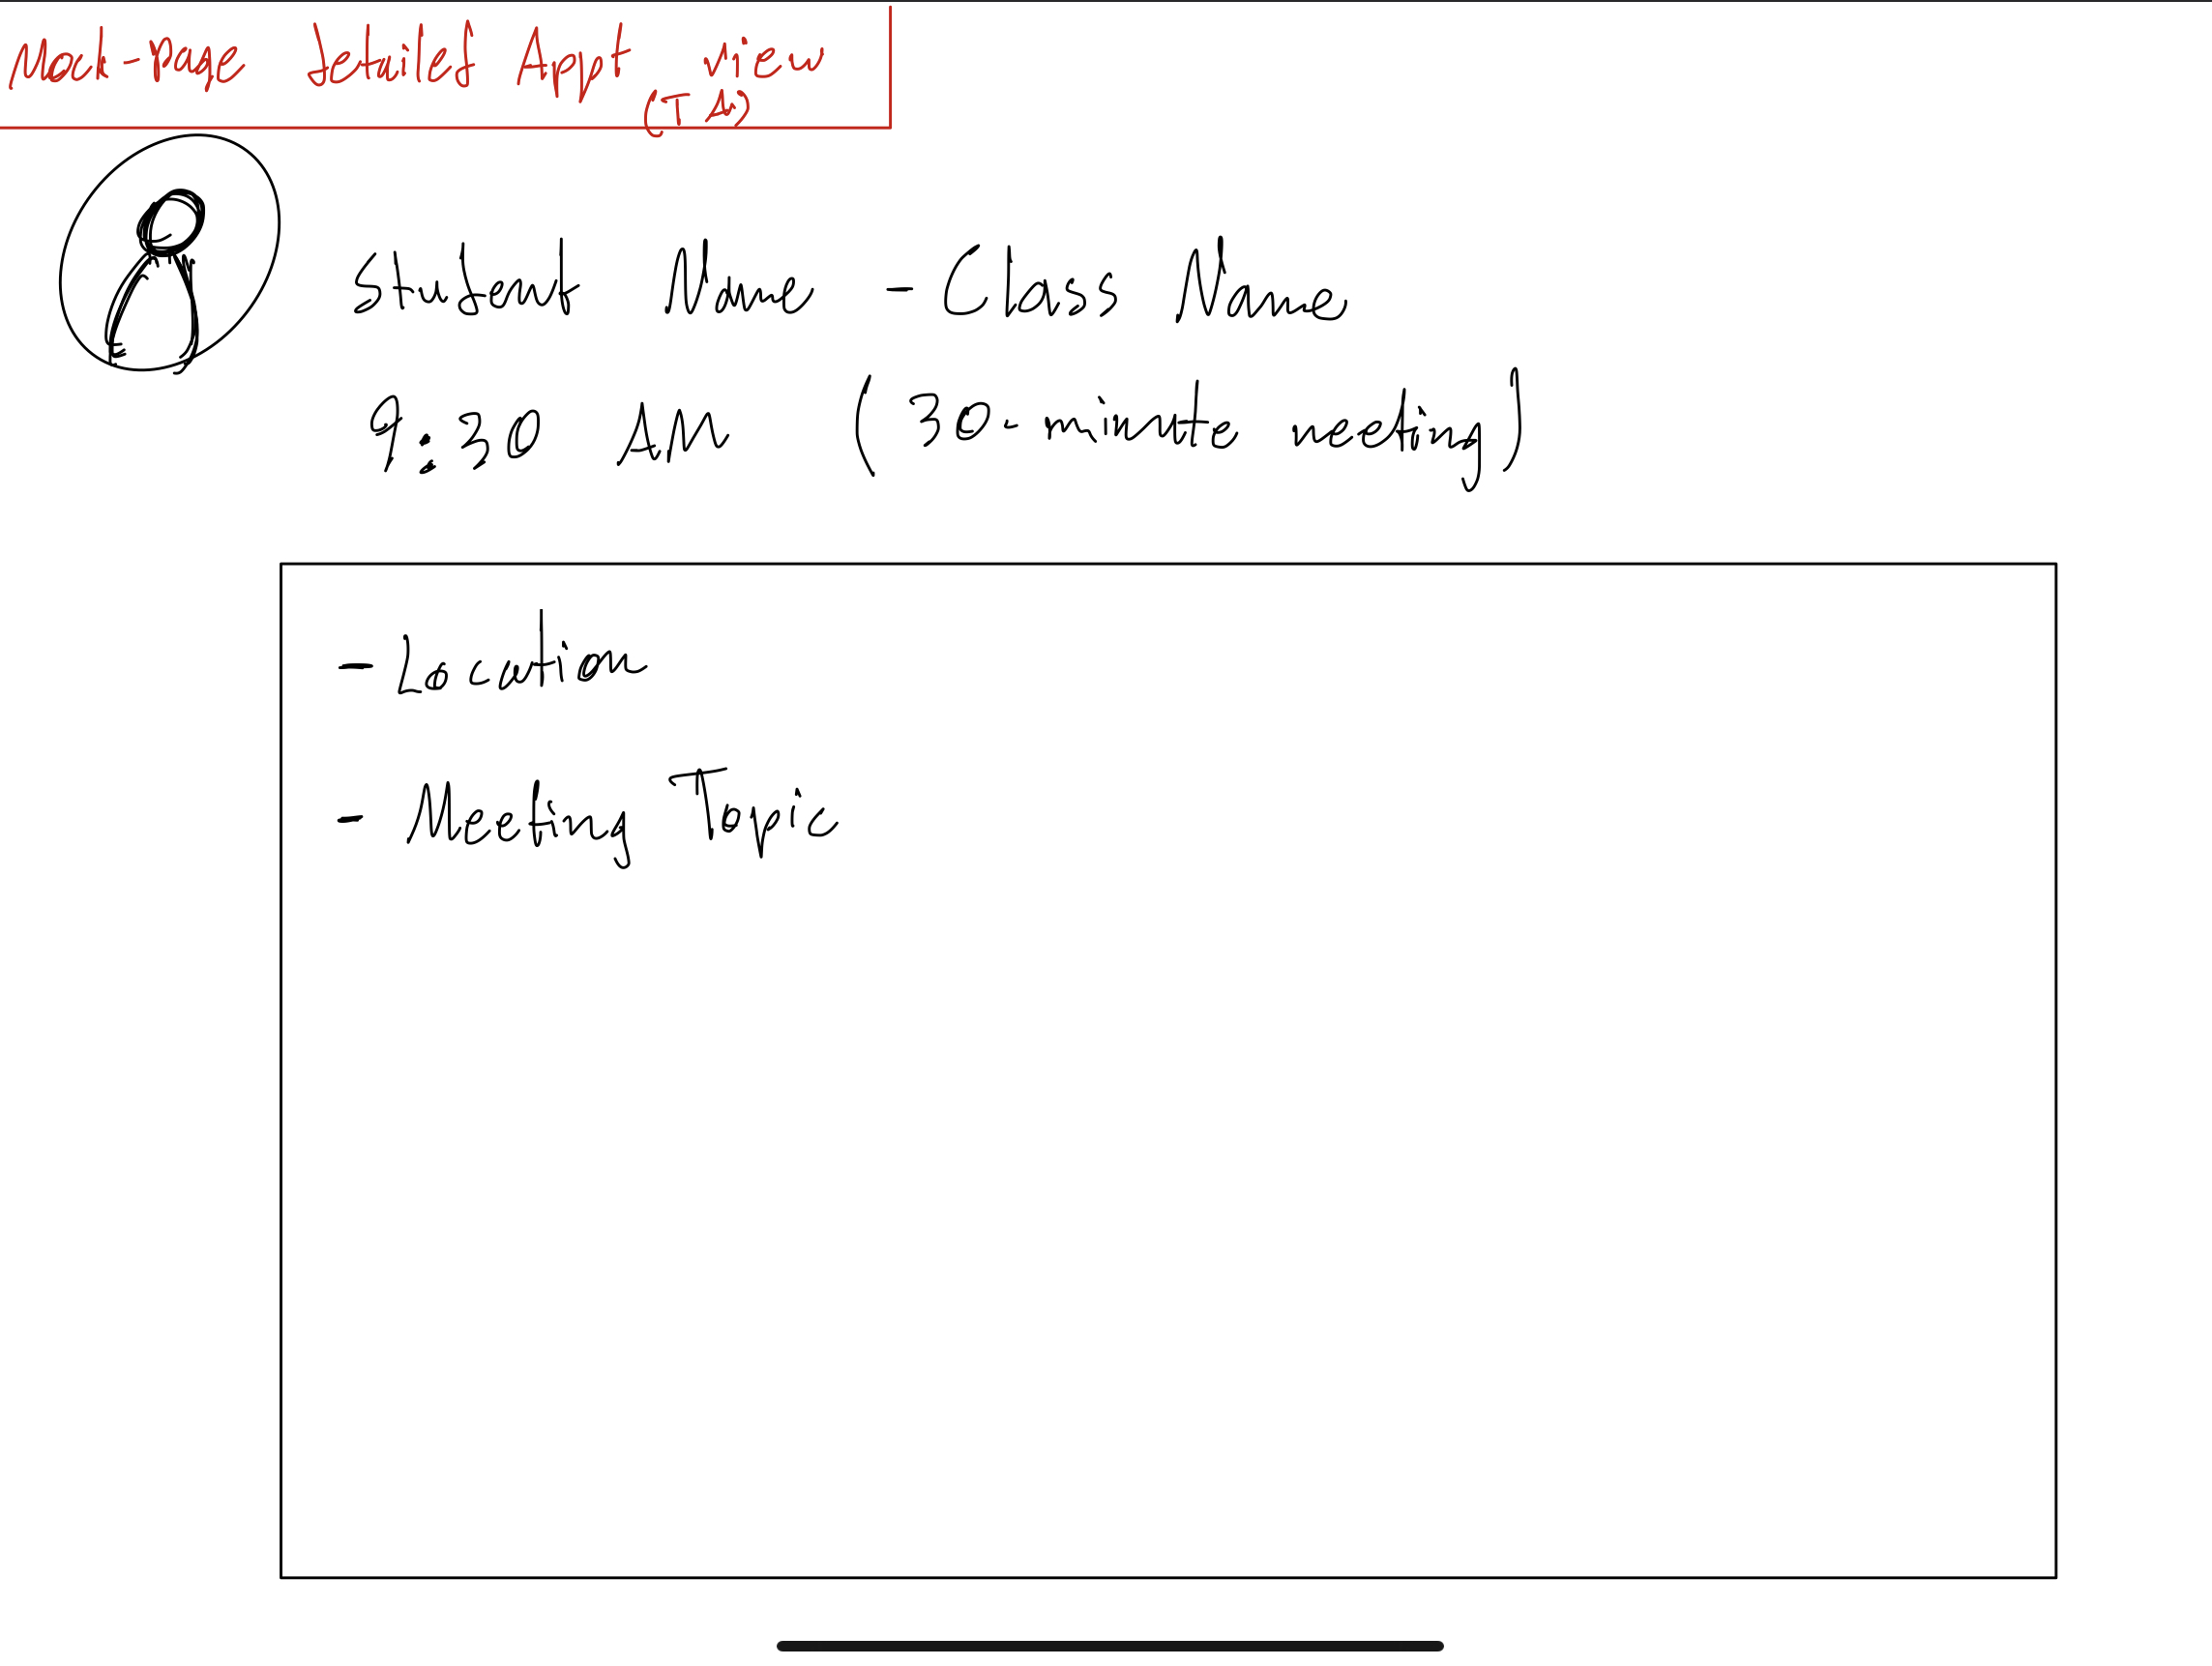 Detailed Appt view
(TA)
Student Name - Class Name
9:30 AM (30-minute meeting)
- Location
- Meeting Topic